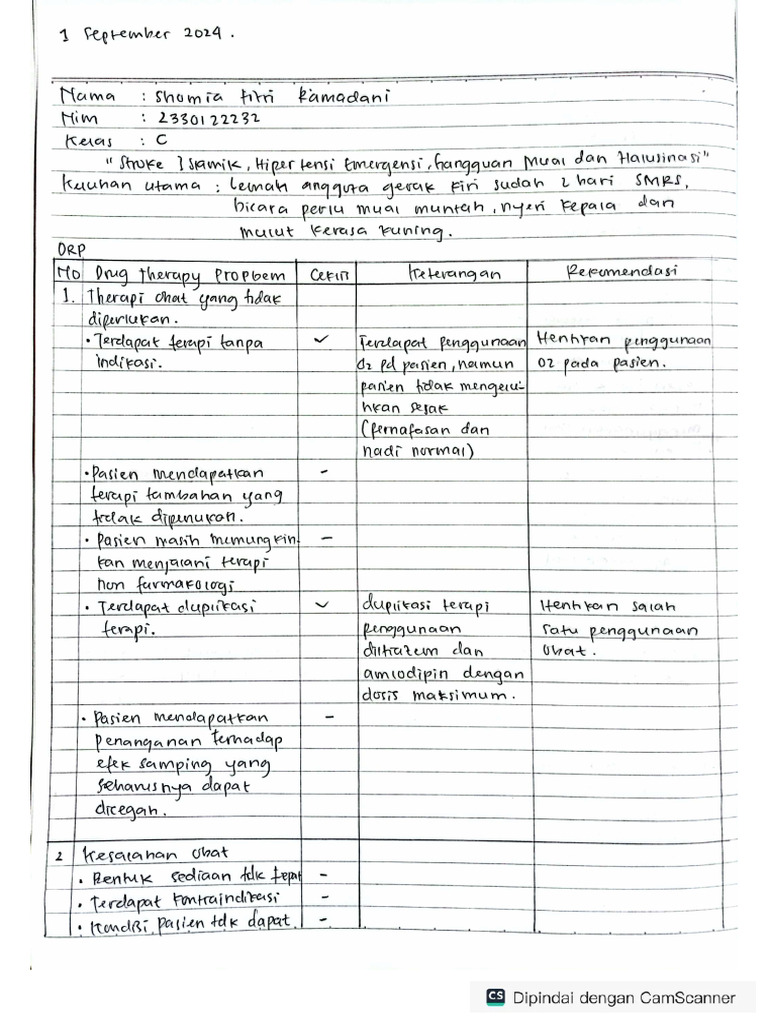 1 September 2024.
Nama : Shomia fitri Ramadani
Nim : 2330122232
Kelas : C
"Stroke Iskamik, Hipertensi Emergensi, Gangguan Mual dan Halusinasi"
Keluhan utama : Lemah anggota gerak kiri sudah 2 hari SMRS,
bicara perlu mual muntah, nyeri kepala dan
mulut kerasa kuning.
DRP
No Drug therapy Propbem Ceklis Keterangan Rekomendasi
1. Therapi obat yang tidak
diperlukan.
• Terdapat terapi tanpa ✓ Terdapat penggunaan Hentikan penggunaan
indikasi. O2 pd pasien, namun O2 pada pasien.
pasien tidak mengelu-
hkan sesak
(pernafasan dan
nadi normal)
• Pasien mendapatkan -
terapi tambahan yang
tidak diperlukan.
• Pasien masih memungkin -
kan menjalani terapi
non farmakologi
• Terdapat duplikasi ✓ duplikasi terapi Hentikan salah
terapi. penggunaan satu penggunaan
diltiazem dan obat.
amlodipin dengan
dosis maksimum.
• Pasien mendapatkan -
penanganan terhadap
efek samping yang
seharusnya dapat
dicegah.
2 Kesalahan obat
• Bentuk sediaan tdk tepat -
• Terdapat kontraindikasi -
• Kondisi pasien tdk dapat -
CS Dipindai dengan CamScanner